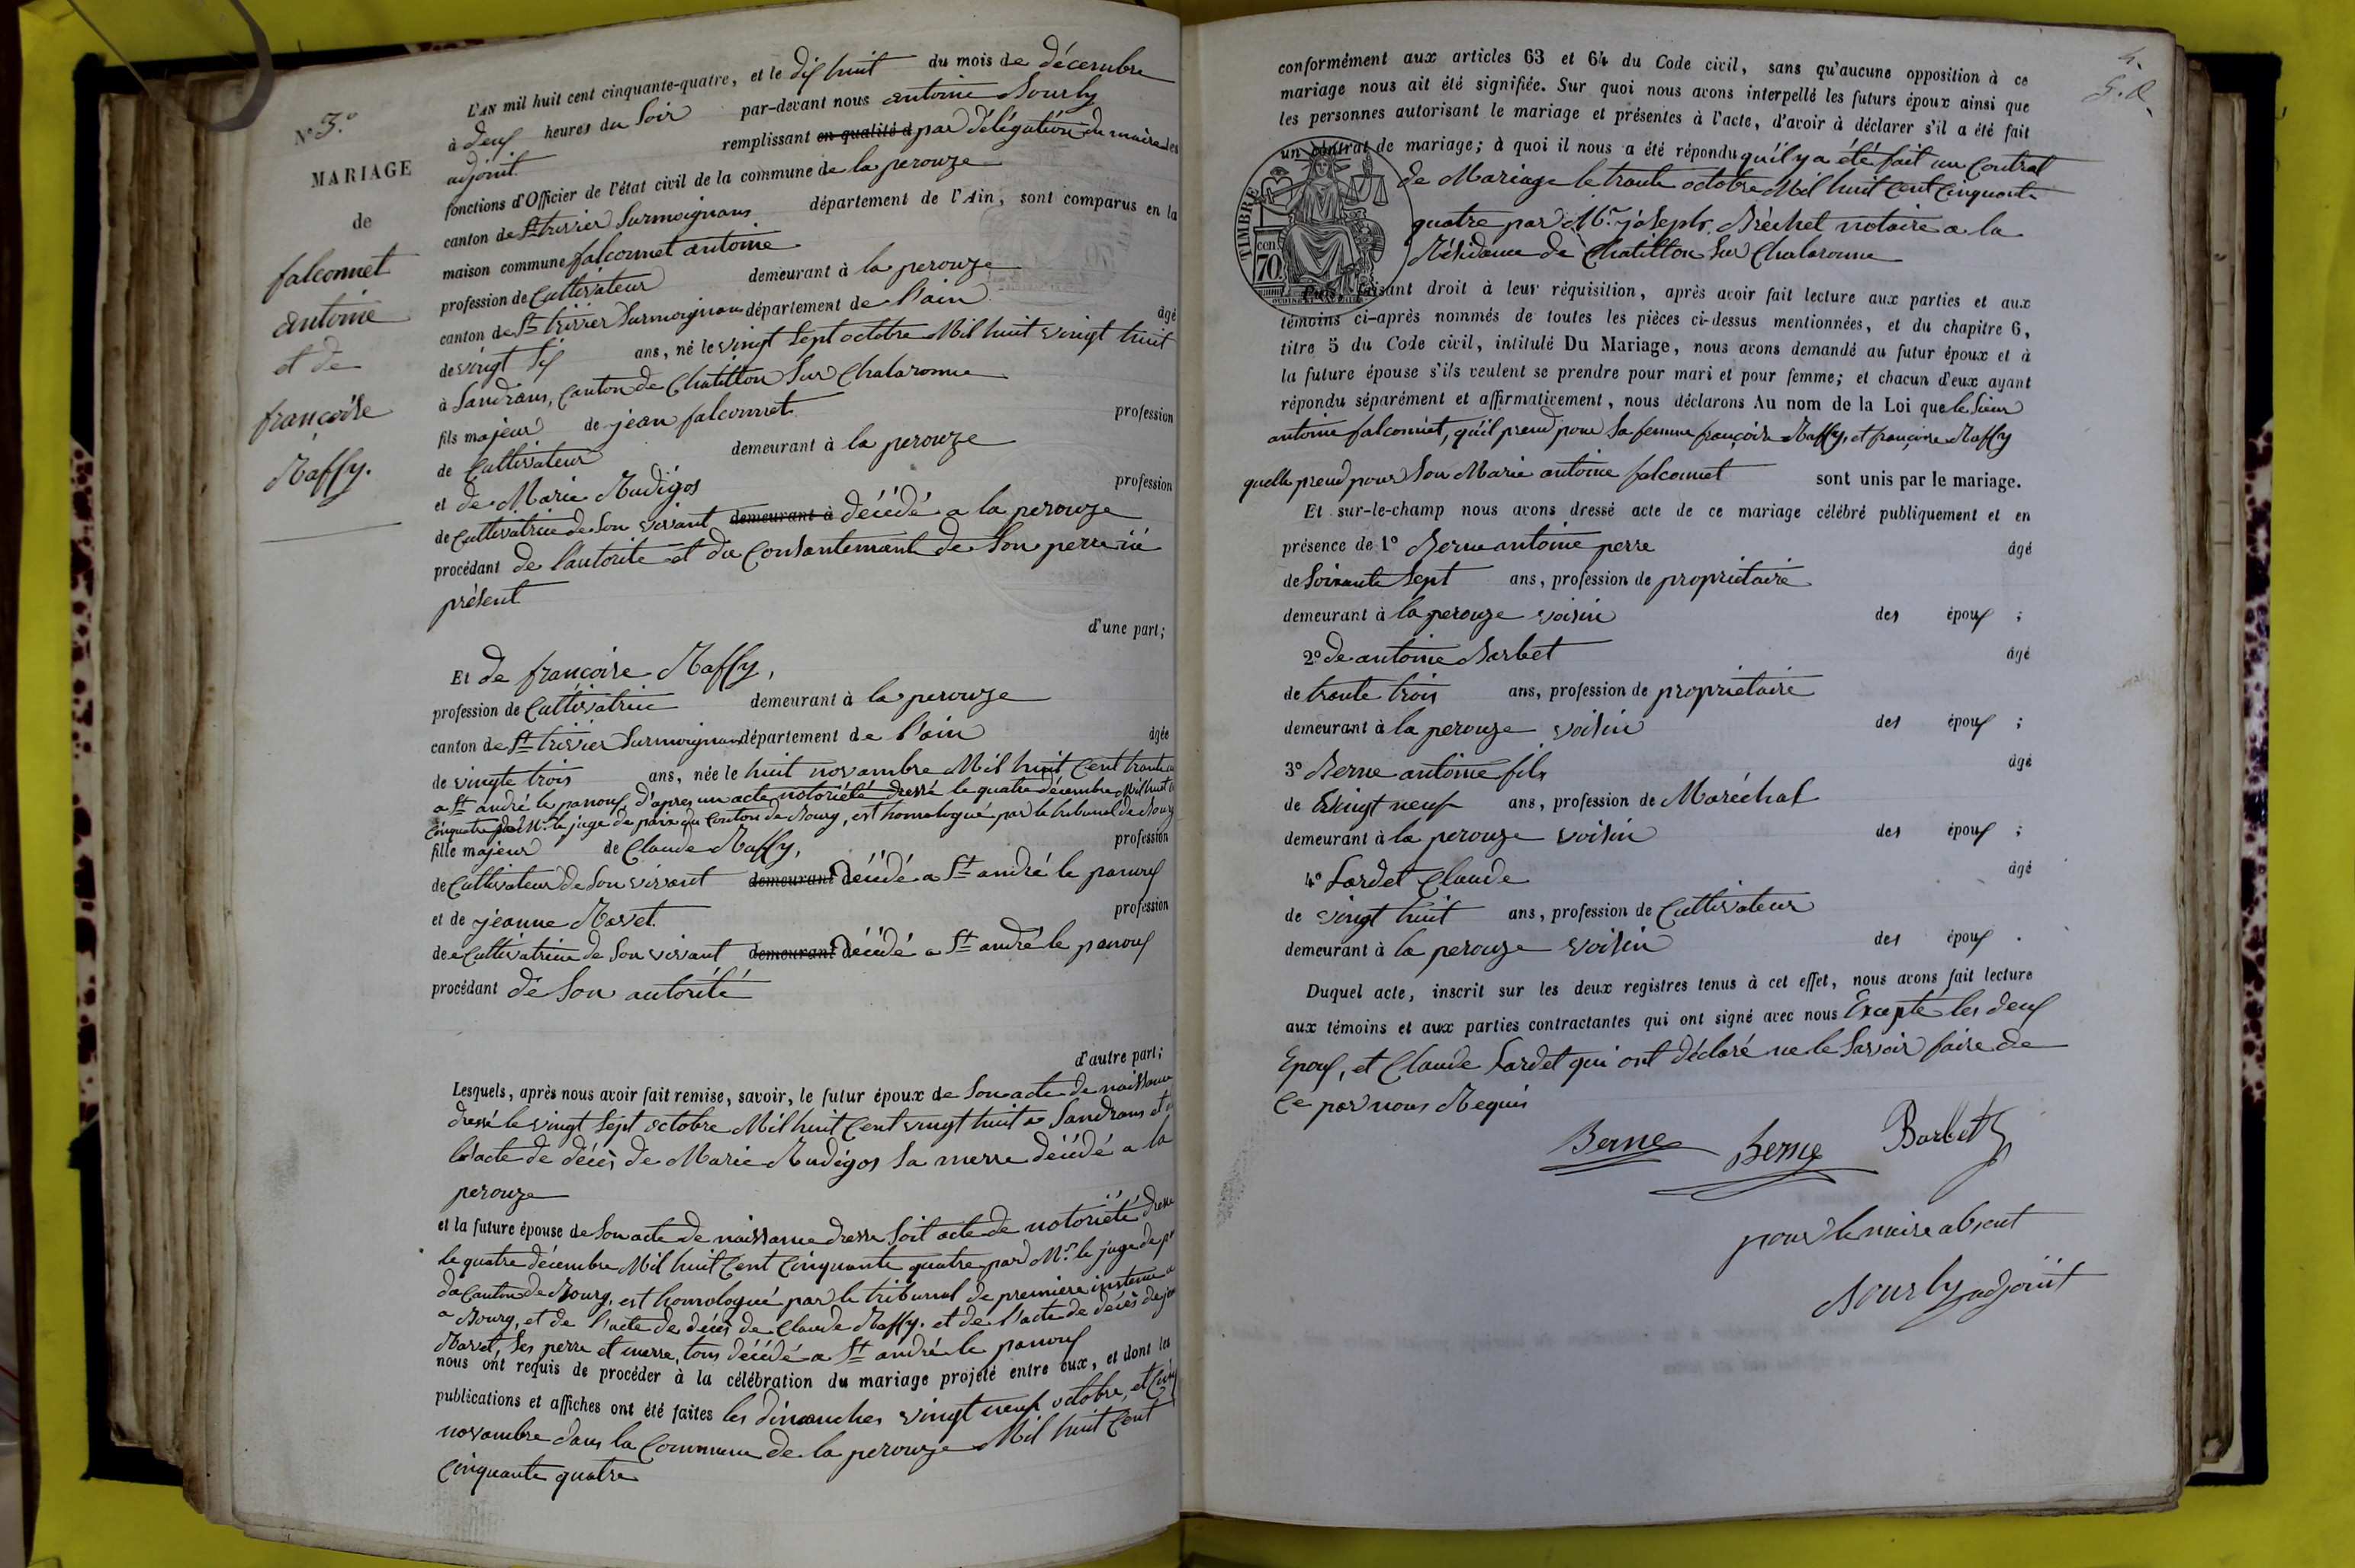 N° 3.°
MARIAGE
de
falconnet
antoine
et de
françoise
Raffy.
L'AN mil huit cent cinquante-quatre, et le dix huit du mois de décembre
à deux heures du Soir par-devant nous antoine Bourly
adjoint remplissant en qualité d par délégation du maire les
fonctions d'Officier de l'état civil de la commune de la perouze
canton de St trivier Surmoignans département de l'Ain, sont comparus en la
maison commune falconnet antoine
profession de Cultivateur demeurant à la perouze
canton de St trivier Surmoignans département de l'ain âgé
de vingt six ans, né le vingt Sept octobre Mil huit vingt huit
à Sandrans, Canton de Chatillon Sur Chalaronne
fils majeur de jean falconnet profession
de Cultivateur demeurant à la perouze
et de Marie Rudigos profession
de Cultivatrice de Son vivant demeurant à décédé a la perouze
procédant de l'autorite et du Consantement de Son perre icé
présent
d'une part;
Et de françoise Raffy,
profession de Cultivatrice demeurant à la perouze
canton de St trivier Surmoignans département de l'ain âgée
de vingte trois ans, née le huit novambre Mil huit Cent trante
a St andré le panoux, d'apres un acte notoriété dressé le quatre décembre Mil huit
Cinquante par Mr le juge de paix du Conton de Bourg, est homologué par le tribunal de Bourg
fille majeur de Claude Raffy, profession
de Cultivateur de Son vivant demeurant décédé a St andré le panoux
et de jeanne Ravet. profession
de Cultivatrice de Son vivant demeurant décédé a St andré le panoux
procédant de Son autorité
d'autre part;
Lesquels, après nous avoir fait remise, savoir, le futur époux de Son acte de naissance
dressé le vingt Sept octobre Mil huit Cent vingt huit a Sandrans et
l'acte de décès de Marie Rudigos Sa merre décédé a la
perouze
et la future épouse de Son acte de naissance dresse Soit acte de notoriété dressé
le quatre décembre Mil huit Cent Cinquante quatre par Mr le juge de
du Canton de Bourg, est homologué par le tribunal de premiere instance
a Bourg, et de l'acte de décès de Claude Raffy. et de l'acte de décès de
Ravet, Ses perre et merre, tous décédé a St andré le panoux
nous ont requis de procéder à la célébration du mariage projeté entre eux, et dont les
publications et affiches ont été faites les dimanches vingt neuf octobre, et Cinq
novambre dans la Commune de la perouze Mil huit Cent
Cinquante quatre
conformément aux articles 63 et 64 du Code civil, sans qu'aucune opposition à ce
mariage nous ait été signifiée. Sur quoi nous avons interpellé les futurs époux ainsi que
les personnes autorisant le mariage et présentes à l'acte, d'avoir à déclarer s'il a été fait
un contrat de mariage; à quoi il nous a été répondu qu'il y a été fait un Contrat
de Mariage le trante octobre Mil huit Cent Cinquante
quatre par Mr joseph Bréchet notaire a la
Résidance de Chatillon Sur Chalaronne
TIMBRE
cen
70.
Puis, faisant droit à leur réquisition, après avoir fait lecture aux parties et aux
témoins ci-après nommés de toutes les pièces ci-dessus mentionnées, et du chapitre 6,
titre 5 du Code civil, intitulé Du Mariage, nous avons demandé au futur époux et à
la future épouse s'ils veulent se prendre pour mari et pour femme; et chacun d'eux ayant
répondu séparément et affirmativement, nous déclarons Au nom de la Loi que le Sieur
antoine falconnet, qu'il prend pour Sa femme françoise Raffy, et françoise Raffy
quelle prend pour Son Marie antoine falconnet sont unis par le mariage.
Et sur-le-champ nous avons dressé acte de ce mariage célébré publiquement et en
présence de 1° Berne antoine perre âgé
de Soixante Sept ans, profession de propriétaire
demeurant à la perouze voisin des époux ;
2° de antoine Barbet âgé
de trante trois ans, profession de propriétaire
demeurant à la perouze voisin des époux ;
3° Berne antoine fils âgé
de vingt neuf ans, profession de Maréchal
demeurant à la perouze voisin des époux ;
4° Lardet Claude âgé
de vingt huit ans, profession de Cultivateur
demeurant à la perouze voisin des époux .
Duquel acte, inscrit sur les deux registres tenus à cet effet, nous avons fait lecture
aux témoins et aux parties contractantes qui ont signé avec nous Excepté les deux
Epoux, et Claude Lardet qui ont déclaré ne le Savoir faire de
Ce par nous Requis
Berne Berne Barbet
pour le maire absent
Bourly adjoint